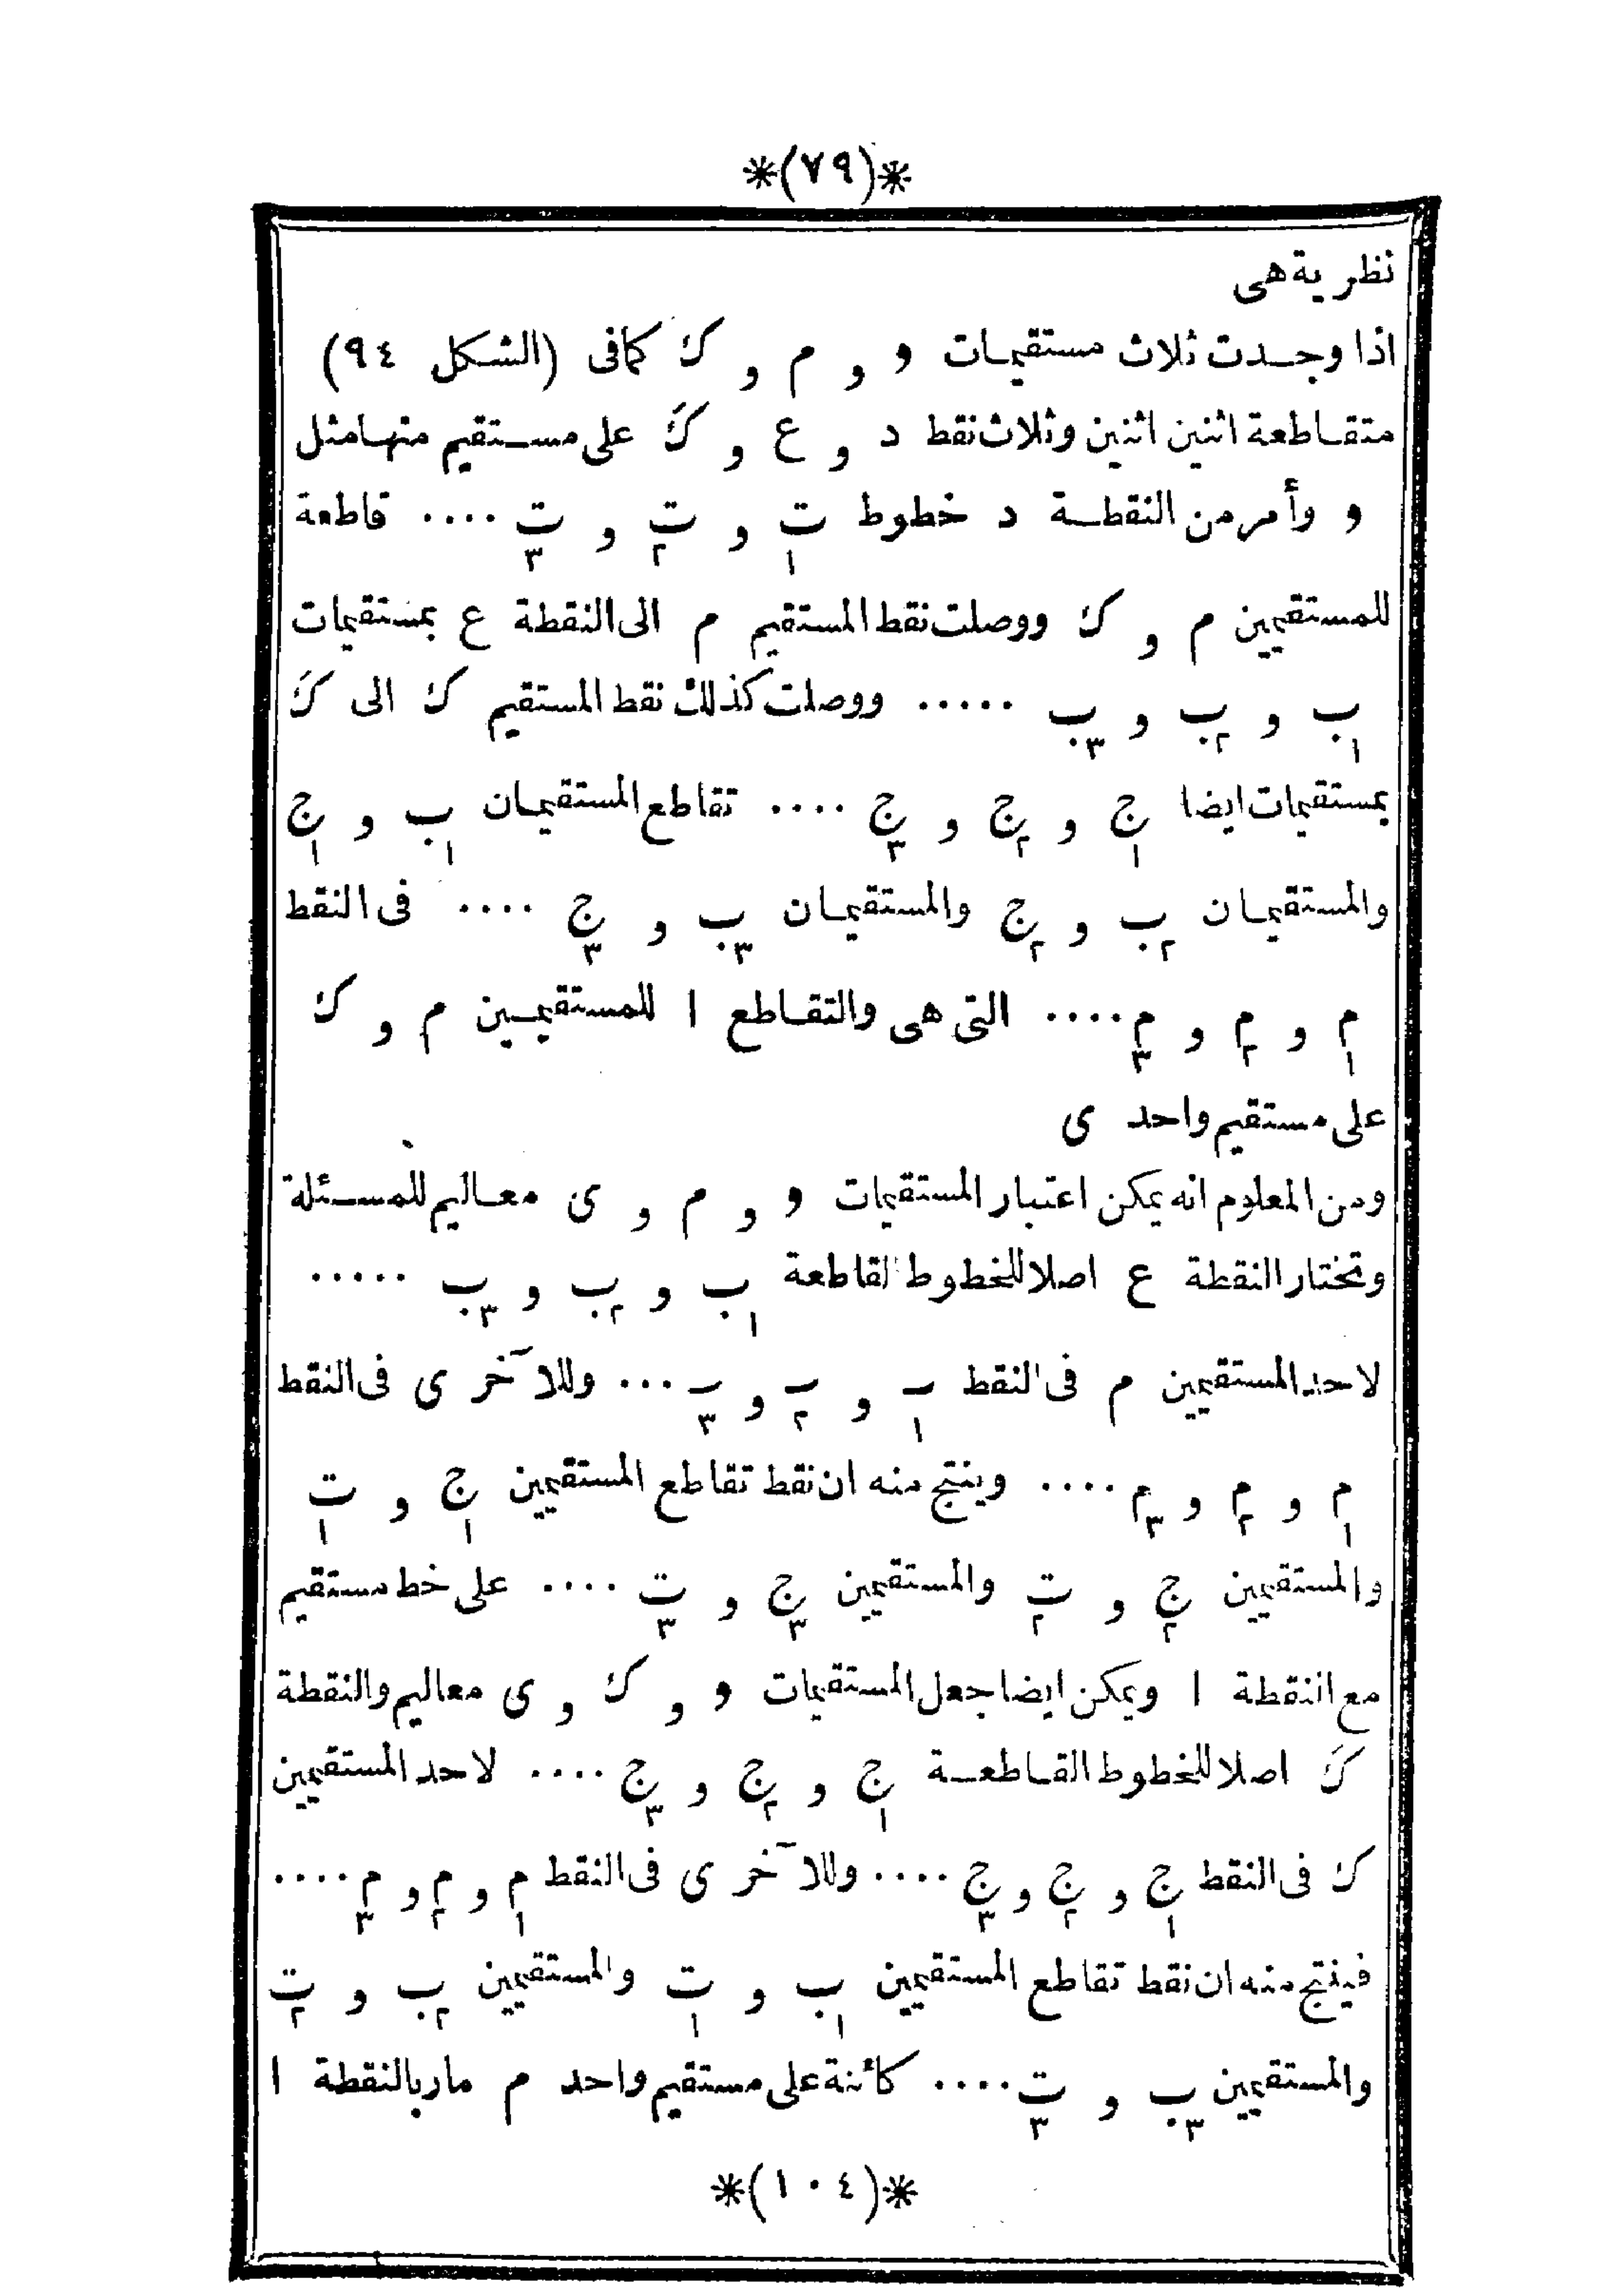 *(٧٩)*
نظرية هى
اذا وجدت ثلاث مستقيمات و و م و ك كمافى (الشكل ٩٤)
متقاطعة اثنين اثنين وثلاث نقط د و ع و كَ على مستقيم منها مثل
و وأمر من النقطة د خطوط ت١ و ت٢ و ت٣ .... قاطعة
للمستقيمين م و ك ووصلت نقط المستقيم م الى النقطة ع بمستقيمات
ب١ و ب٢ و ب٣ ..... ووصلت كذلك نقط المستقيم ك الى كَ
بمستقيمات ايضا ج١ و ج٢ و ج٣ .... تقاطع المستقيمان ب١ و ج١
والمستقيمان ب٢ و ج٢ والمستقيمان ب٣ و ج٣ .... فى النقط
م١ و م٢ و م٣ .... التى هى والتقاطع ا للمستقيمين م و ك
على مستقيم واحد ى
ومن المعلوم انه يمكن اعتبار المستقيمات و و م و ى معاليم للمسئلة
وتختار النقطة ع اصلا للخطوط القاطعة ب١ و ب٢ و ب٣ .....
لاحد المستقيمين م فى النقط ب١ و ب٢ و ب٣ ... وللآخر ى فى النقط
م١ و م٢ و م٣ .... وينتج منه ان نقط تقاطع المستقيمين ج١ و ت١
والمستقيمين ج٢ و ت٢ والمستقيمين ج٣ و ت٣ .... على خط مستقيم
مع النقطة ا ويمكن ايضا جعل المستقيمات و و ك و ى معاليم والنقطة
كَ اصلا للخطوط القاطعة ج١ و ج٢ و ج٣ .... لاحد المستقيمين
ك فى النقط ج١ و ج٢ و ج٣ .... وللآخر ى فى النقط م١ و م٢ و م٣ ....
فينتج منه ان نقط تقاطع المستقيمين ب١ و ت١ والمستقيمين ب٢ و ت٢
والمستقيمين ب٣ و ت٣ .... كائنة على مستقيم واحد م مار بالنقطة ا
*(١٠٤)*